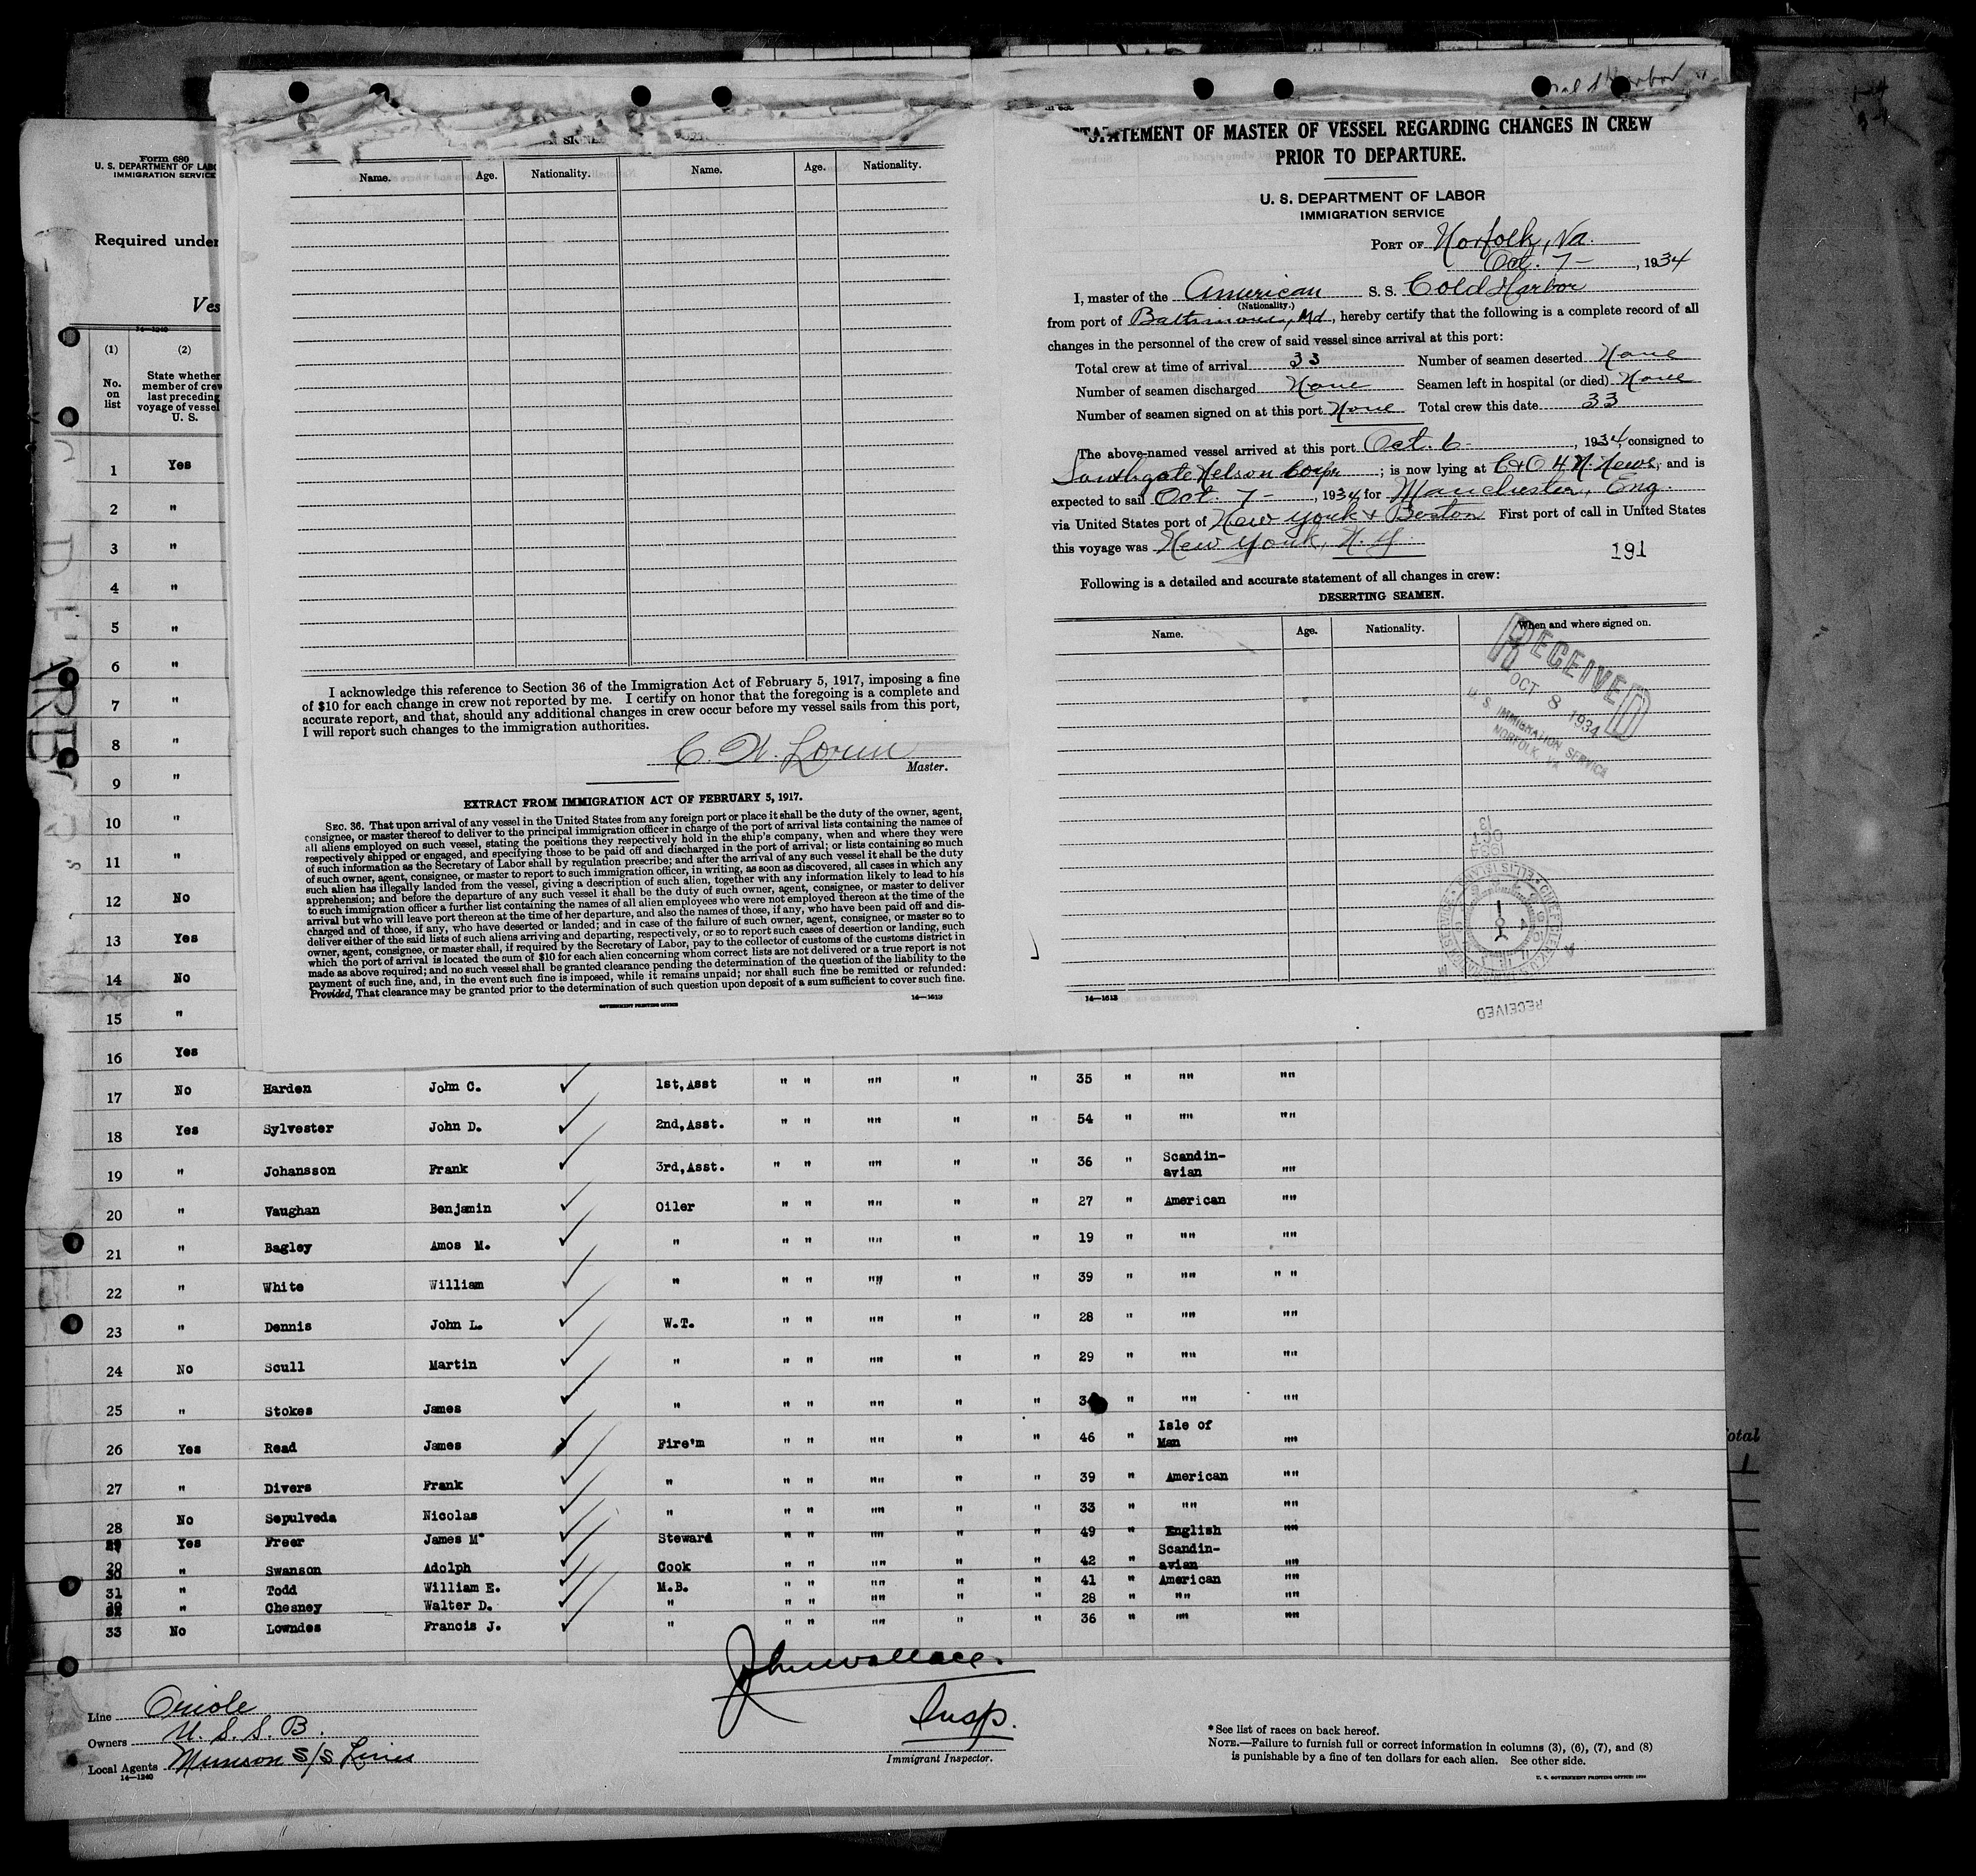 Form 680
U. S. DEPARTMENT OF LABO
IMMIGRATION SERVICE
Required under
Ves
14—1240
(1) (2)
No. on list
State whether member of crew last preceding voyage of vessel U. S.
1 Yes
2 "
3 "
4 "
5 "
6 "
7 "
8 "
9 "
10 "
11 "
12 No
13 Yes
14 No
15 "
16 Yes
Name. Age. Nationality. Name. Age. Nationality.
I acknowledge this reference to Section 36 of the Immigration Act of February 5, 1917, imposing a fine
of $10 for each change in crew not reported by me. I certify on honor that the foregoing is a complete and
accurate report, and that, should any additional changes in crew occur before my vessel sails from this port,
I will report such changes to the immigration authorities.
Master.
EXTRACT FROM IMMIGRATION ACT OF FEBRUARY 5, 1917.
SEC. 36. That upon arrival of any vessel in the United States from any foreign port or place it shall be the duty of the owner, agent,
consignee, or master thereof to deliver to the principal immigration officer in charge of the port of arrival lists containing the names of
all aliens employed on such vessel, stating the positions they respectively hold in the ship's company, when and where they were
respectively shipped or engaged, and specifying those to be paid off and discharged in the port of arrival; or lists containing so much
of such information as the Secretary of Labor shall by regulation prescribe; and after the arrival of any such vessel it shall be the duty
of such owner, agent, consignee, or master to report to such immigration officer, in writing, as soon as discovered, all cases in which any
such alien has illegally landed from the vessel, giving a description of such alien, together with any information likely to lead to his
apprehension; and before the departure of any such vessel it shall be the duty of such owner, agent, consignee, or master to deliver
to such immigration officer a further list containing the names of all alien employees who were not employed thereon at the time of the
arrival but who will leave port thereon at the time of her departure, and also the names of those, if any, who have been paid off and dis-
charged and of those, if any, who have deserted or landed; and in case of the failure of such owner, agent, consignee, or master so to
deliver either of the said lists of such aliens arriving and departing, respectively, or so to report such cases of desertion or landing, such
owner, agent, consignee, or master shall, if required by the Secretary of Labor, pay to the collector of customs of the customs district in
which the port of arrival is located the sum of $10 for each alien concerning whom correct lists are not delivered or a true report is not
made as above required; and no such vessel shall be granted clearance pending the determination of the question of the liability to the
payment of such fine, and, in the event such fine is imposed, while it remains unpaid; nor shall such fine be remitted or refunded:
Provided, That clearance may be granted prior to the determination of such question upon deposit of a sum sufficient to cover such fine.
GOVERNMENT PRINTING OFFICE 14—1613
STATEMENT OF MASTER OF VESSEL REGARDING CHANGES IN CREW
PRIOR TO DEPARTURE.
U. S. DEPARTMENT OF LABOR
IMMIGRATION SERVICE
PORT OF Norfolk, Va.
Oct. 7 - , 1934
I, master of the American S. S. Cold Harbor
(Nationality.)
from port of Baltimore, Md, hereby certify that the following is a complete record of all
changes in the personnel of the crew of said vessel since arrival at this port:
Total crew at time of arrival 33 Number of seamen deserted None
Number of seamen discharged None Seamen left in hospital (or died) None
Number of seamen signed on at this port None Total crew this date 33
The above-named vessel arrived at this port Oct. 6 - , 1934, consigned to
Southgate Nelson Corpn ; is now lying at C&O H N. News, and is
expected to sail Oct. 7 - , 1934, for Manchester, Eng.
via United States port of New York + Boston First port of call in United States
this voyage was New York, N. Y.
191
Following is a detailed and accurate statement of all changes in crew:
DESERTING SEAMEN.
Name. Age. Nationality. When and where signed on.
RECEIVED
OCT 8 1934
U. S. IMMIGRATION SERVICE
NORFOLK, VA.
14—1613
RECEIVED
17 No Harden John C. 1st,Asst " " "" " " 35 " "" ""
18 Yes Sylvester John D. 2nd,Asst. " " "" " " 54 " "" ""
19 " Johansson Frank 3rd,Asst. " " "" " " 36 " Scandin-avian ""
20 " Vaughan Benjamin Oiler " " "" " " 27 " American ""
21 " Bagley Amos M. " " " "" " " 19 " "" ""
22 " White William " " " "" " " 39 " "" " "
23 " Dennis John L. W.T. " " "" " " 28 " "" ""
24 No Scull Martin " " " "" " " 29 " "" ""
25 " Stokes James " " " "" " " 3 " "" ""
26 Yes Read James Fire'm " " "" " " 46 " Isle of Man ""
27 " Divers Frank " " " "" " " 39 " American ""
28 No Sepulveda Nicolas " " " "" " " 33 " "" ""
29 Yes Freer James M" Steward " " "" " " 49 " English ""
30 " Swanson Adolph Cook " " "" " " 42 " Scandin-avian ""
31 " Todd William E. M.B. " " "" " " 41 " American ""
32 " Chesney Walter D. " " " "" " " 28 " "" ""
33 No Lowndes Francis J. " " " "" " " 36 " "" ""
otal
Line Oriole
Owners U. S. S. B.
Local Agents Munson S/S Lines
14—1240
John Wallace.
Insp.
Immigrant Inspector.
* See list of races on back hereof.
NOTE.—Failure to furnish full or correct information in columns (3), (6), (7), and (8)
is punishable by a fine of ten dollars for each alien. See other side.
U. S. GOVERNMENT PRINTING OFFICE: 1934